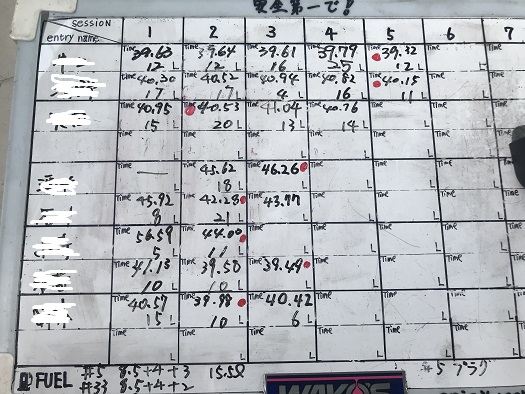 安全第一で!
SESSION
entry name
1 2 3 4 5 6 7
Time 39.63 Time 39.64 Time 39.61 Time 39.79 Time 39.32 Time Time
12 L 12 L 16 L 25 L 12 L L
Time 40.30 Time 40.52 Time 40.94 Time 40.82 Time 40.15 Time Time
17 L 17 L 4 L 16 L 11 L L
Time 40.95 Time 40.53 Time 41.04 Time 40.76 Time Time Time
15 L 20 L 13 L 14 L L L
Time Time Time Time Time Time Time
L L L L L L
Time — Time 45.62 Time 46.26 Time Time Time Time
L 18 L L L L L
Time 45.92 Time 42.28 Time 43.77 Time Time Time Time
8 L 21 L L L L L
Time 56.59 Time 44.00 Time Time Time Time Time
5 L 11 L L L L L
Time 41.13 Time 39.50 Time 39.49 Time Time Time Time
10 L 10 L L L L L
Time 40.57 Time 39.98 Time 40.42 Time Time Time Time
15 L 10 L 6 L L L L
Time Time Time Time Time Time Time
L L L L L L
FUEL #5 8.5+4+3 15.5L
#33 8.5+4+2
#5 プラグ
WAKO'S